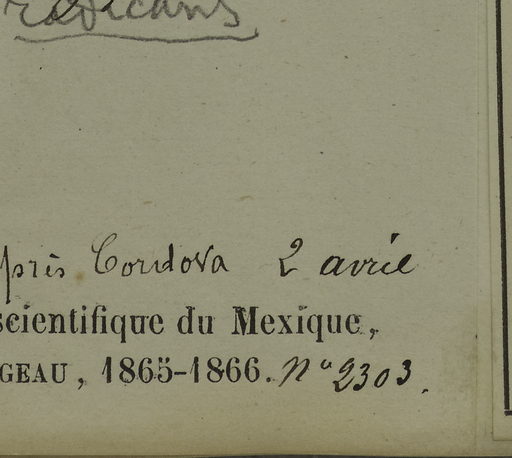 radicans
près Cordova 2 avril
scientifique du Mexique,
GEAU, 1865-1866. Nº 2303.